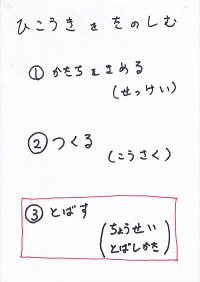 ひこうきをたのしむ
① かたちをきめる
(せっけい)
② つくる
(こうさく)
③ とばす
(ちょうせい
とばしかた)